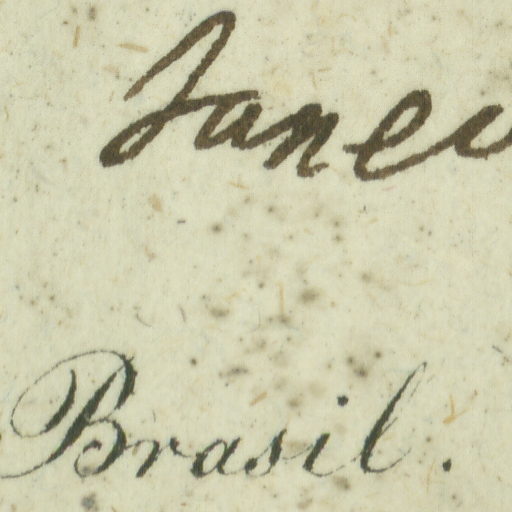 Janei
Brasil.